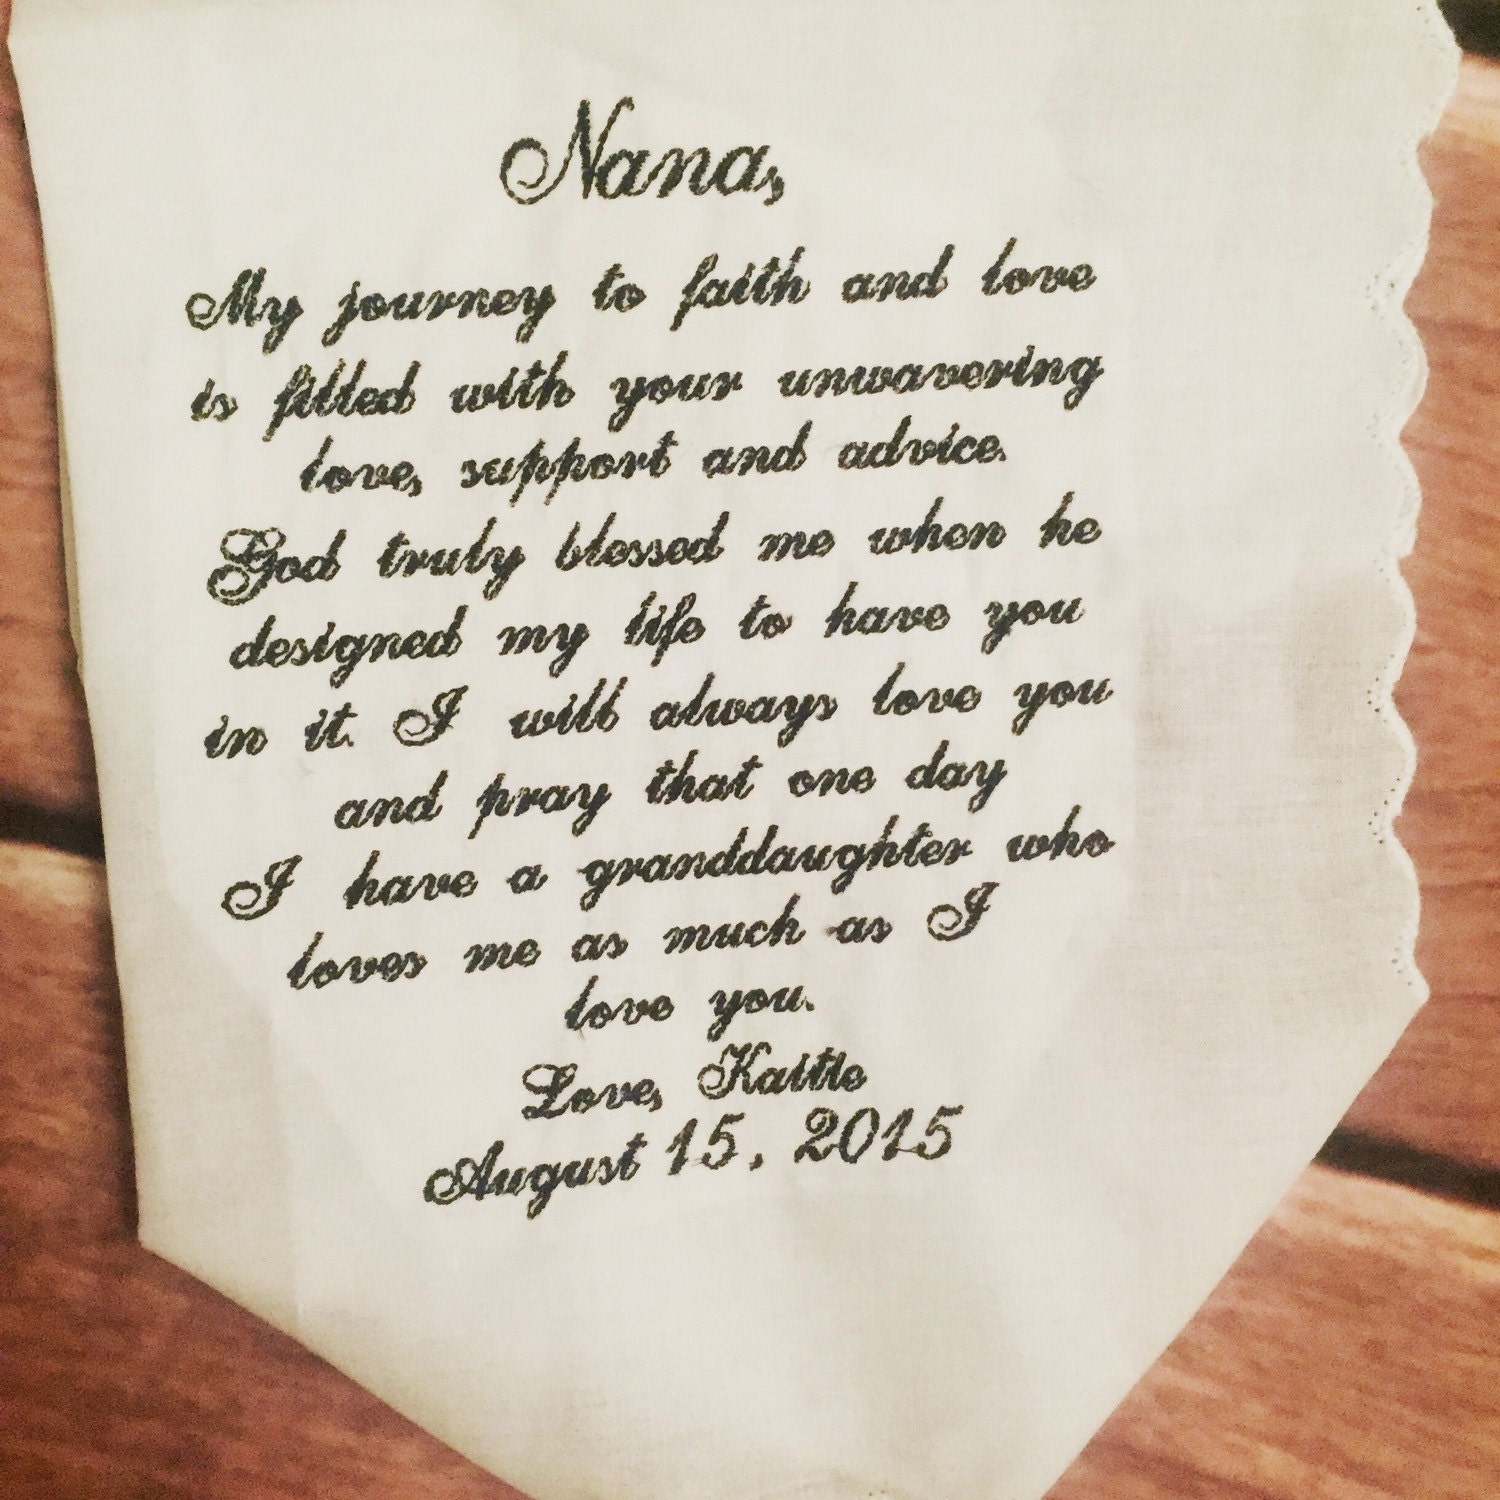 Nana,
My journey to faith and love
is filled with your unwavering
love, support and advice.
God truly blessed me when he
designed my life to have you
in it. I will always love you
and pray that one day
I have a granddaughter who
loves me as much as I
love you.
Love, Kaitie
August 15, 2015